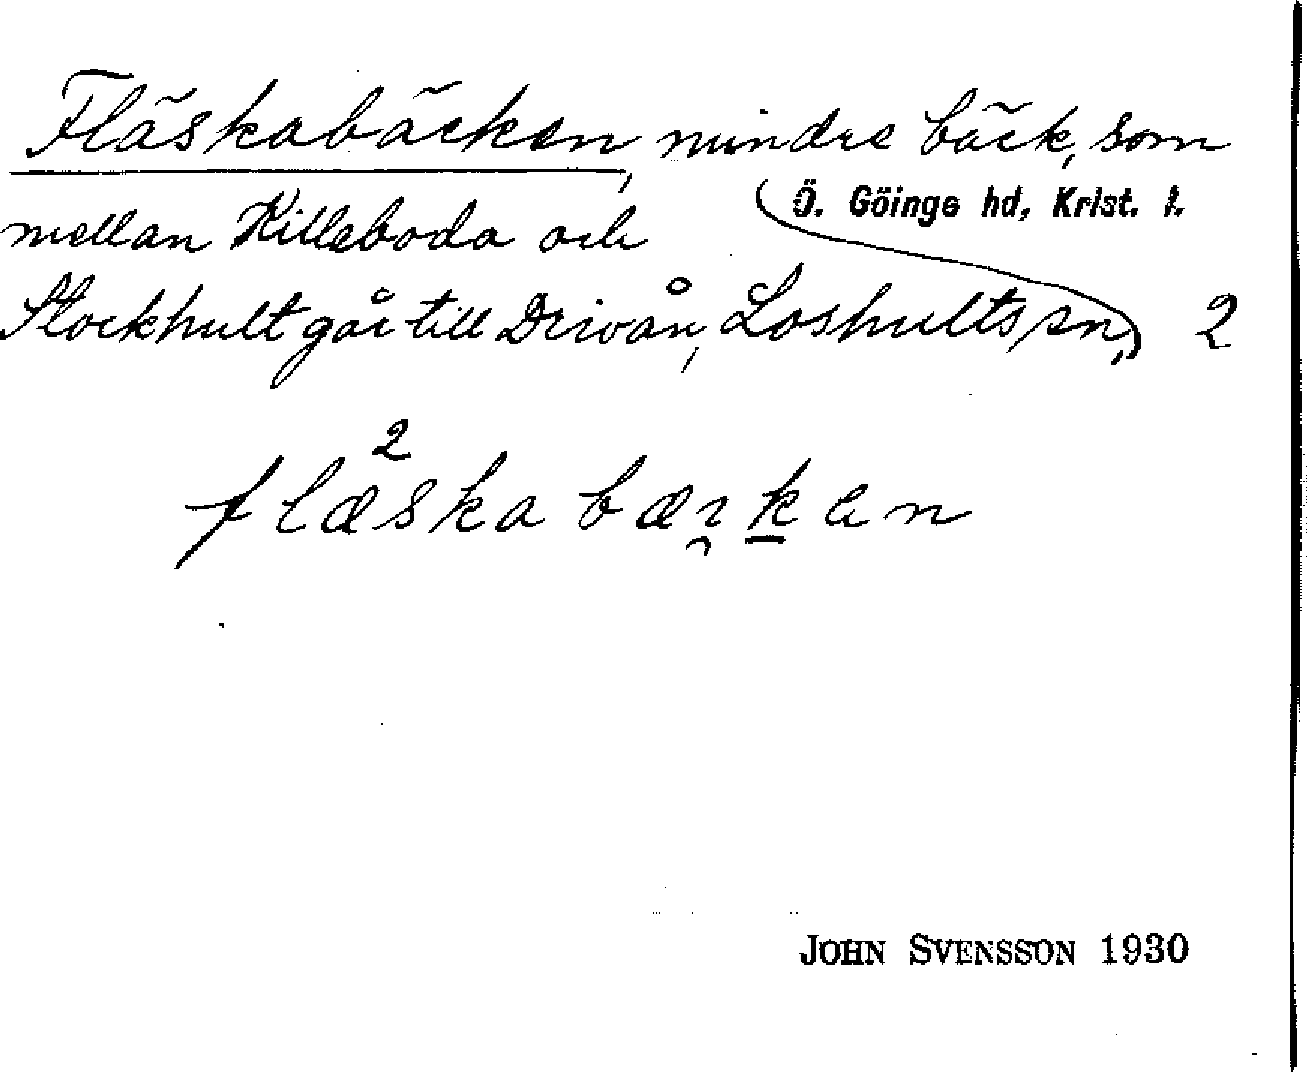 Fläskabäcken, mindre bäck, som
Ö. Göinge hd, Krist. l.
mellan Killeboda och
Stockhult går till Drivån, Loshults sn, 2
2
flæskabæıken
JOHN SVENSSON 1930